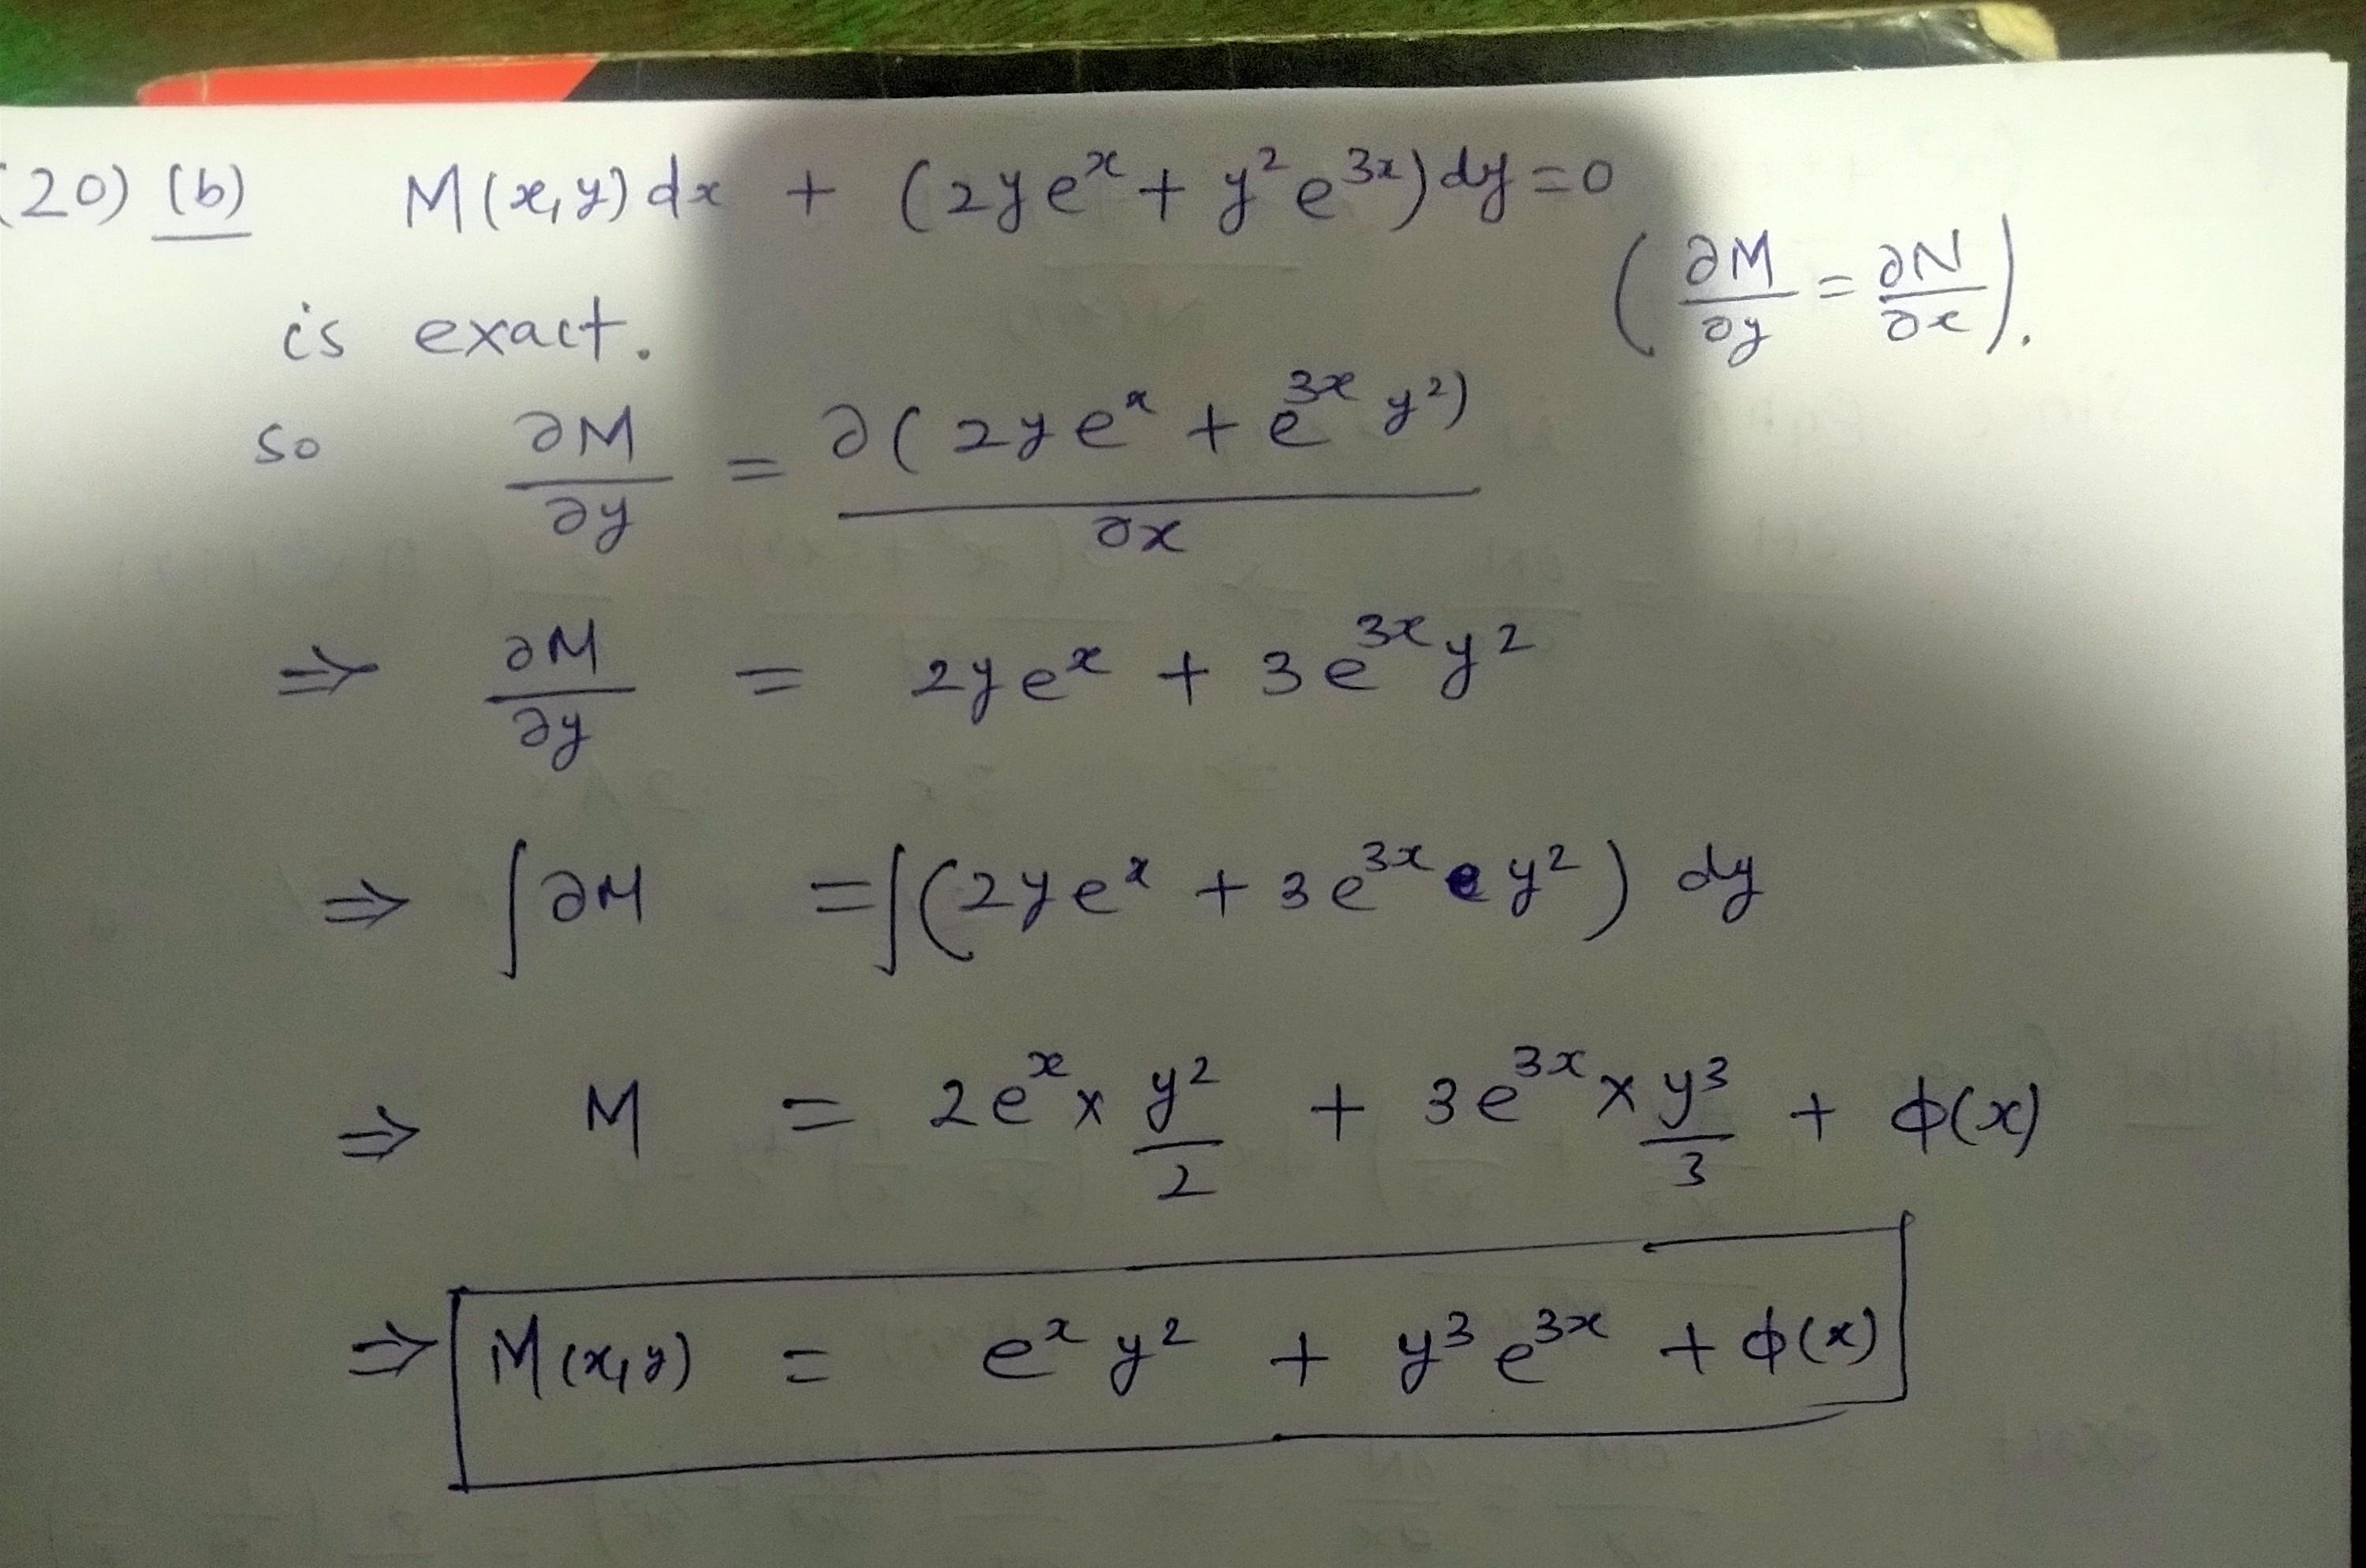 (20) (b) M(x,y)dx + (2ye^x + y²e^{3x})dy=0
(∂M/∂y = ∂N/∂x).
is exact.
so ∂M/∂y = ∂(2ye^x + e^{3x} y²)/∂x
⇒ ∂M/∂y = 2ye^x + 3e^{3x}y²
⇒ ∫∂M = ∫(2ye^x + 3e^{3x} y²) dy
⇒ M = 2e^x × y²/2 + 3e^{3x} × y³/3 + ϕ(x)
⇒ M(x,y) = e^x y² + y³ e^{3x} + ϕ(x)